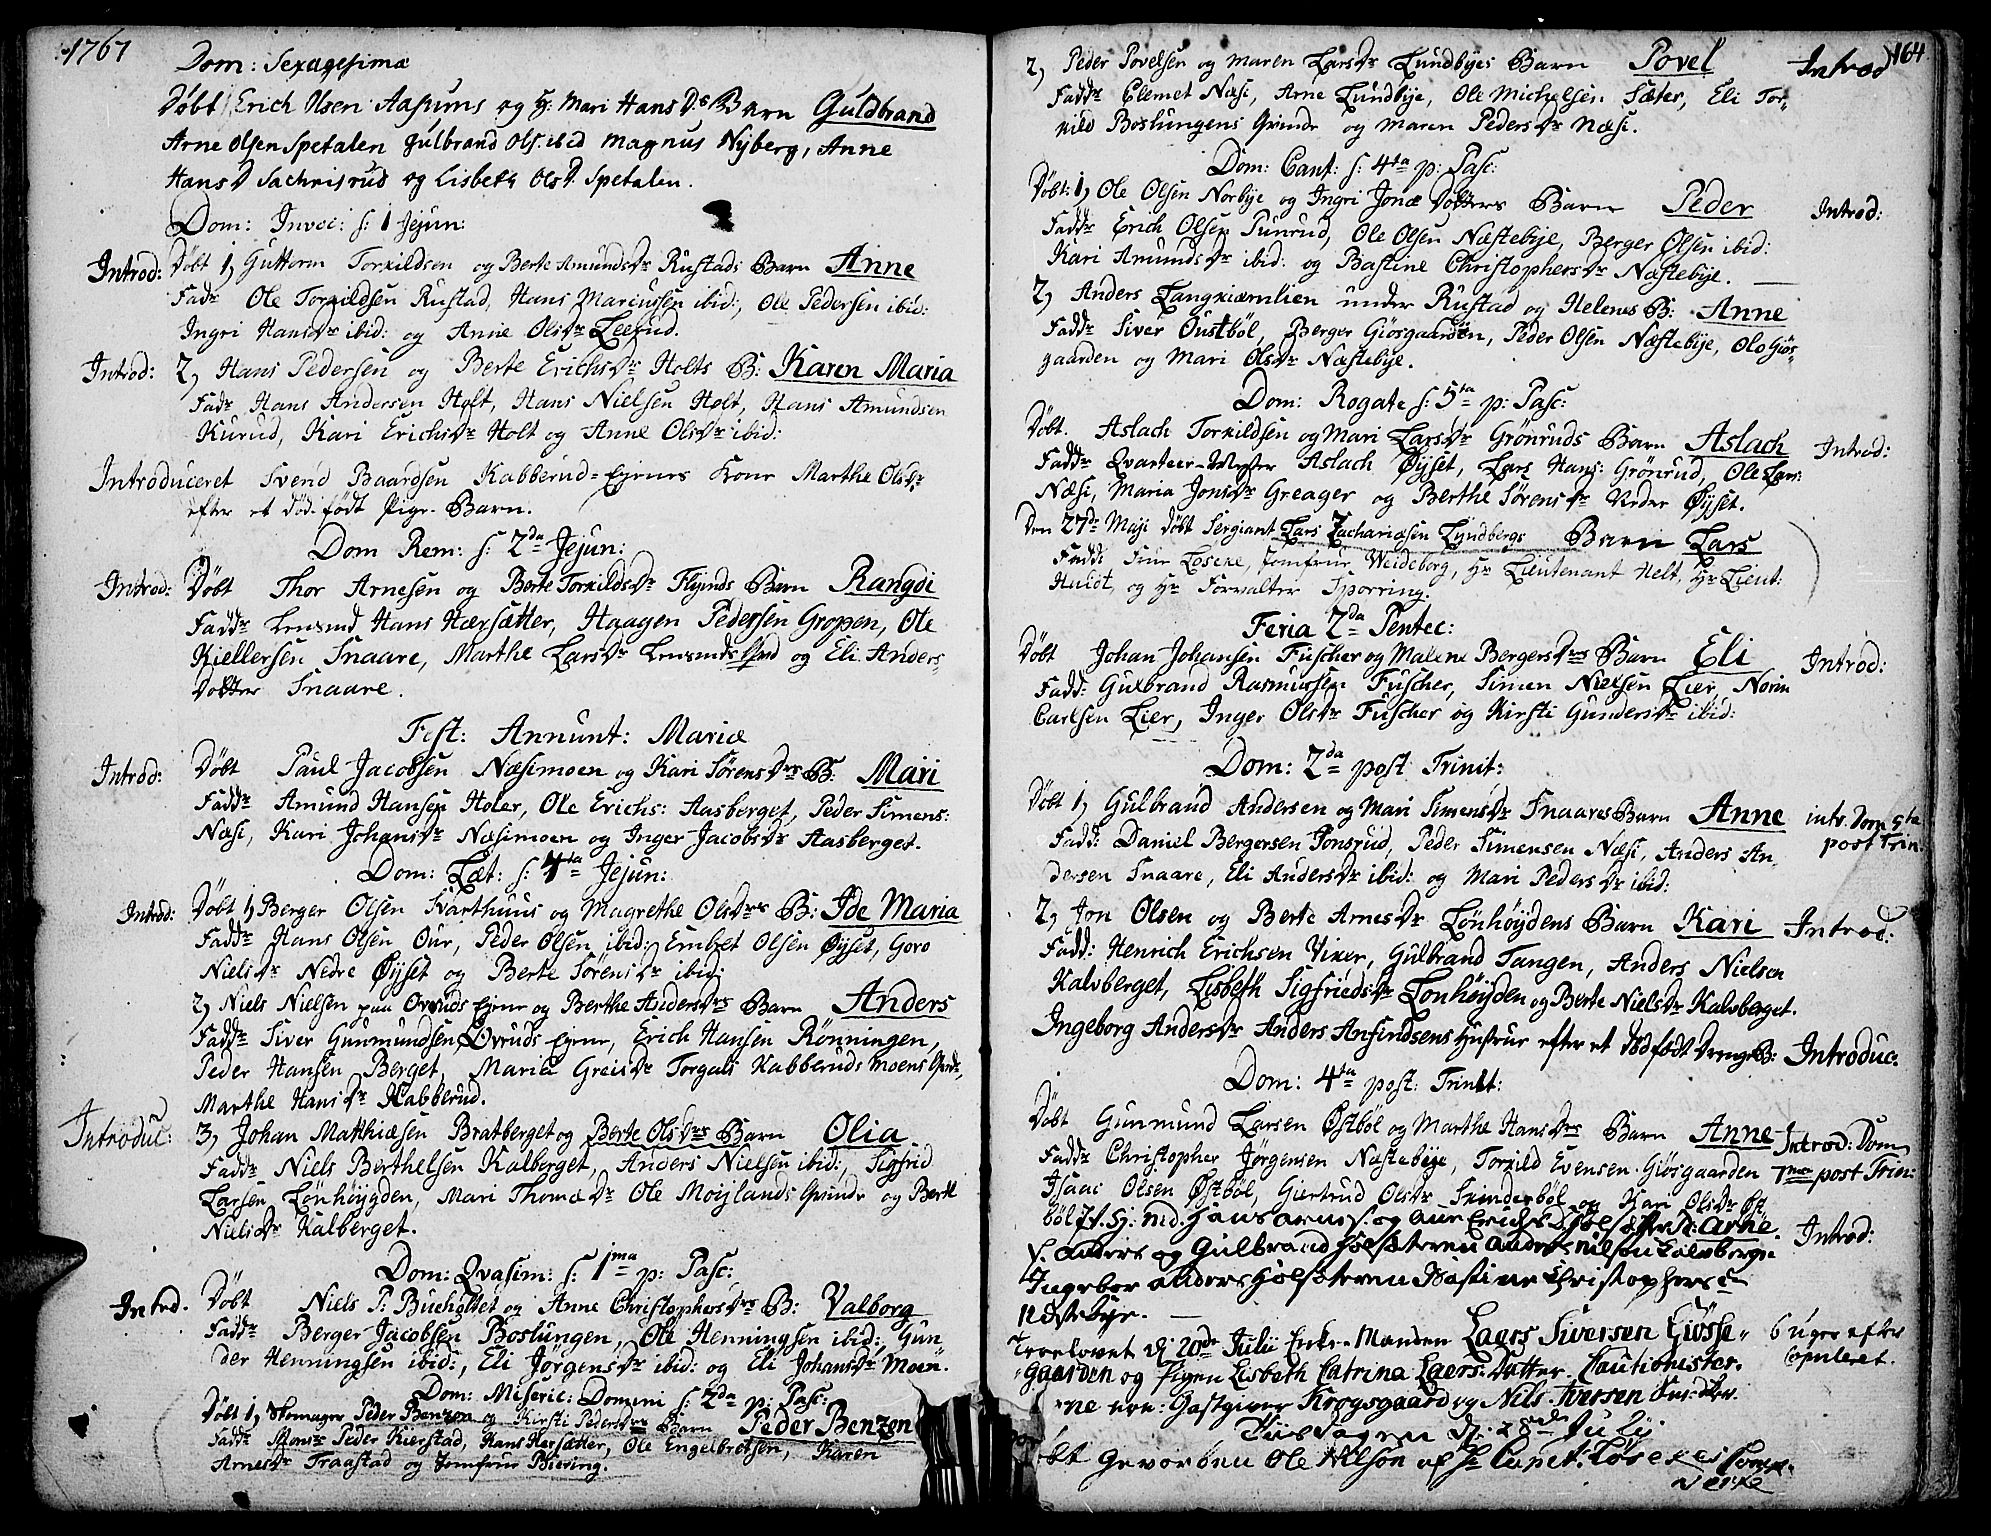 1767
Dom: Sexagesimæ
Døbt Erich Olsen Aasums og H: Mari Hans Ds Barn Guldbrand
Arne Olsen Spetalen Gulbrand Ols. ibid Magnus Nyberg, Anne
Hans D Sachrisrud og Lisbeth Ols D. Spetalen.
Dom: Invoc: s: 1 Jejun:
Introd: Døbt 1, Guttorm Torkildsen og Berte Amunds Dr Rustads Barn Anne
Fadr Ole Torkildsen Rustad, Hans Marcussen ibid:, Ole Pedersen ibid:
Ingri Hans Dr ibid: og Anne Ols Dr Leerud.
Introd: 2, Hans Pedersen og Berte Erichs Dr Holts B: Karen Maria
Fadr Hans Andersen Holt, Hans Nielsen Holt, Hans Amundsen
Kurud, Kari Erichs Dr Holt og Anne Ols Dr ibid:
Introduceret Svend Baardsen Kabberud-Ejernes Kone Marthe Ols Dr
efter et død-født Pige-Barn.
Dom Rem: s: 2da Jejun:
Introd: Døbt Thor Arnesen og Berte Torkilds Dr Flyinds Barn Rangdi
Faddr Lensmd Hans Hærsætter, Haagen Pedersen Gropen, Ole
Kiellersen Snaare, Marthe Lars Dr Lensmds og Eli Anders
Dotter Snaare.
Fest: Annunt: Mariæ
Introd: Døbt Paul Jacobsen Næsimoen og Kari Sørens Drs B: Mari
Faddr Amund Hansen Holer, Ole Erichs: Aasberget, Peder Simens:
Næsi, Kari Johans Dr Næsimoen og Inger Jacobs Dr Aasberget.
Dom: Læt: s: 4ta Jejun:
Introd: Døbt 1, Berger Olsen Svarthuus og Magrethe Ols Drs B: Ide Maria
Faddr Hans Olsen Our, Peder Olsen ibid: Embret Olsen Øyset, Goro
Niels Dr Nedre Øyset og Berte Sørens Dr ibid:
2, Niels Nielsen paa Ovruds Ejene og Berthe Anders Drs Barn Anders
Faddr Siver Gunmundsen Ovruds Ejene, Erich Hansen Rønningen,
Peder Hansen Berget, Maria Greis Dr Torgals Kabberuds moens
Marthe Hans Dr Kabberud.
Introduc: 3, Johan Matthiæsen Bratberget og Berte Ols Drs Barn Olia
Faddr Niels Berthelsen Kalberget, Anders Nielsen ibid:, Sigfrid
Larsen Lønhøygden, Mari Thomæ Dr Ole Moijlands Qvinde og Berte
Niels Dr Kalberget.
Dom: Qvasim: s: 1ma p: Pasc:
Introd. Døbt Niels P: Bueholtet og Anne Christophers Drs B: Valborg
Faddr Berger Jacobsen Boslungen, Ole Henningsen ibid:, Gun
der Henningsen ibid:, Eli Jørgens Dr ibid: og Eli Johans Dr Moen.
Dom: Miseric: Domini s: 2da p: Pasc:
Døbt 1, Skomager Peder Benzen og Kirsti Peders Drs Barn Peder Benzen
Faddr Monsr Peder Kierstad, Hans Hersætter, Ole Engelbretsen, Karen
Arnes Dr Traastad og Jomfrue Biering.
164
2, Peder Povelsen og Maren Lars Dr Lundbyes Barn Povel Introd
Faddr Clemet Næsi, Arne Lundbye, Ole Michelsen Sæter, Eli Tor-
kild Boslungens Qvinde og Maren Peders Dr Næsi.
Dom: Cant: s: 4ta p: Pasc:
Døbt: 1, Ole Olsen Norbye og Ingri Jonæ Dotters Barn Peder Introd:
Faddr Erich Olsen Punrud, Ole Olsen Næstebye, Berger Olsen ibid:
Kari Amunds Dr ibid: og Bastine Christophers Dr Næstebye.
2, Anders Langkiærnlien under Rustad og Helenes B: Anne
Faddr Siver Oustbøl, Berger Giøsgaarden, Peder Olsen Næstebye, Ole Giøs-
gaarden og Mari Ols Dr Næstebye.
Dom: Rogate s: 5ta p: Pasc:
Døbt. Aslach Torkildsen og Mari Lars Dr Grønruds Barn Aslach Introd:
Faddr Qvarteer-Mester Aslach Øyset, Lars Hans: Grønrud, Ole Lars:
Næsi, Maria Jons Dr Greager og Berthe Sørens Dr Nedre Øyset.
Den 27de Maji Døbt Sergiant Lars Zachariæsen Lyndbergs Barn Lars
Faddr Frue Løseke, Jomfrue Weideborg, Hr Lieutenant Helt, Hr Lieut:
Huldt, og Hr Forvalter Sporring.
Feria 2da Pentec:
Døbt Johan Johansen Fuscher og Malene Bergers Drs Barn Eli Introd:
Fadd: Gulbrand Rasmussen Fuscher, Simen Nielsen Lier, Norin
Carlsen Lier, Inger Ols Dr Fuscher og Kirsti Gunders Dr ibid:
Dom: 2da post Trinit:
Døbt 1, Gulbrand Andersen og Mari Simens Dr Snaares Barn Anne intr. Dom 5ta
Fadd: Daniel Bergersen Ponsrud, Peder Simensen Næsi, Anders An, post Trin.
dersen Snaare, Eli Anders Dr ibid: og Mari Peders Dr ibid:
2, Jon Olsen og Berte Arnes Dr Lønhøydens Barn Kari Introd:
Fadd: Henrich Erichsen Viker, Gulbrand Tangen, Anders Nielsen
Kalvberget, Lisbeth Sigfrieds Dr Lønhøyden og Berte Niels Dr Kalvberget.
Ingeborg Anders Dr Anders Ansindsens Hustrue efter et Dødfødt Drenge B: Introduc:
Dom: 4ta post: Trinit:
Døbt Gunmund Larsen Østbøl og Marthe Hans Drs Barn Anne Introd: Dom
Faddr Christopher Jørgensen Næstebye, Torkild Evensen Giøsgaarden 7ma post Trin:
Isaac Olsen Østbøl, Giertrud Ols Dr Skinderbøl og Kari Ols Dr Øst
bøl Hans Arnes. og Anne Erichs D. Arne. Introd:
f. Anders og Gulbrand Holsæteren Anders Nilsen Kalvberge
Ingebor Anders Holsæteren Bastine Christophers D
Nestebye.
Trolovet d. 20de Julii Enke-Manden Laers Siversen Giøsse- 6 uger efter
gaarden og Pigen Lisbeth Catrina Laers-Datter. Cautionister. Copuleret.
ne ere: Gastgiver Krogsgaard og Nils Iversen
Tiisdagen d: 28de July
Døbt Gevorben Ole Nilson af Hr Capet: Løsekes Comp-